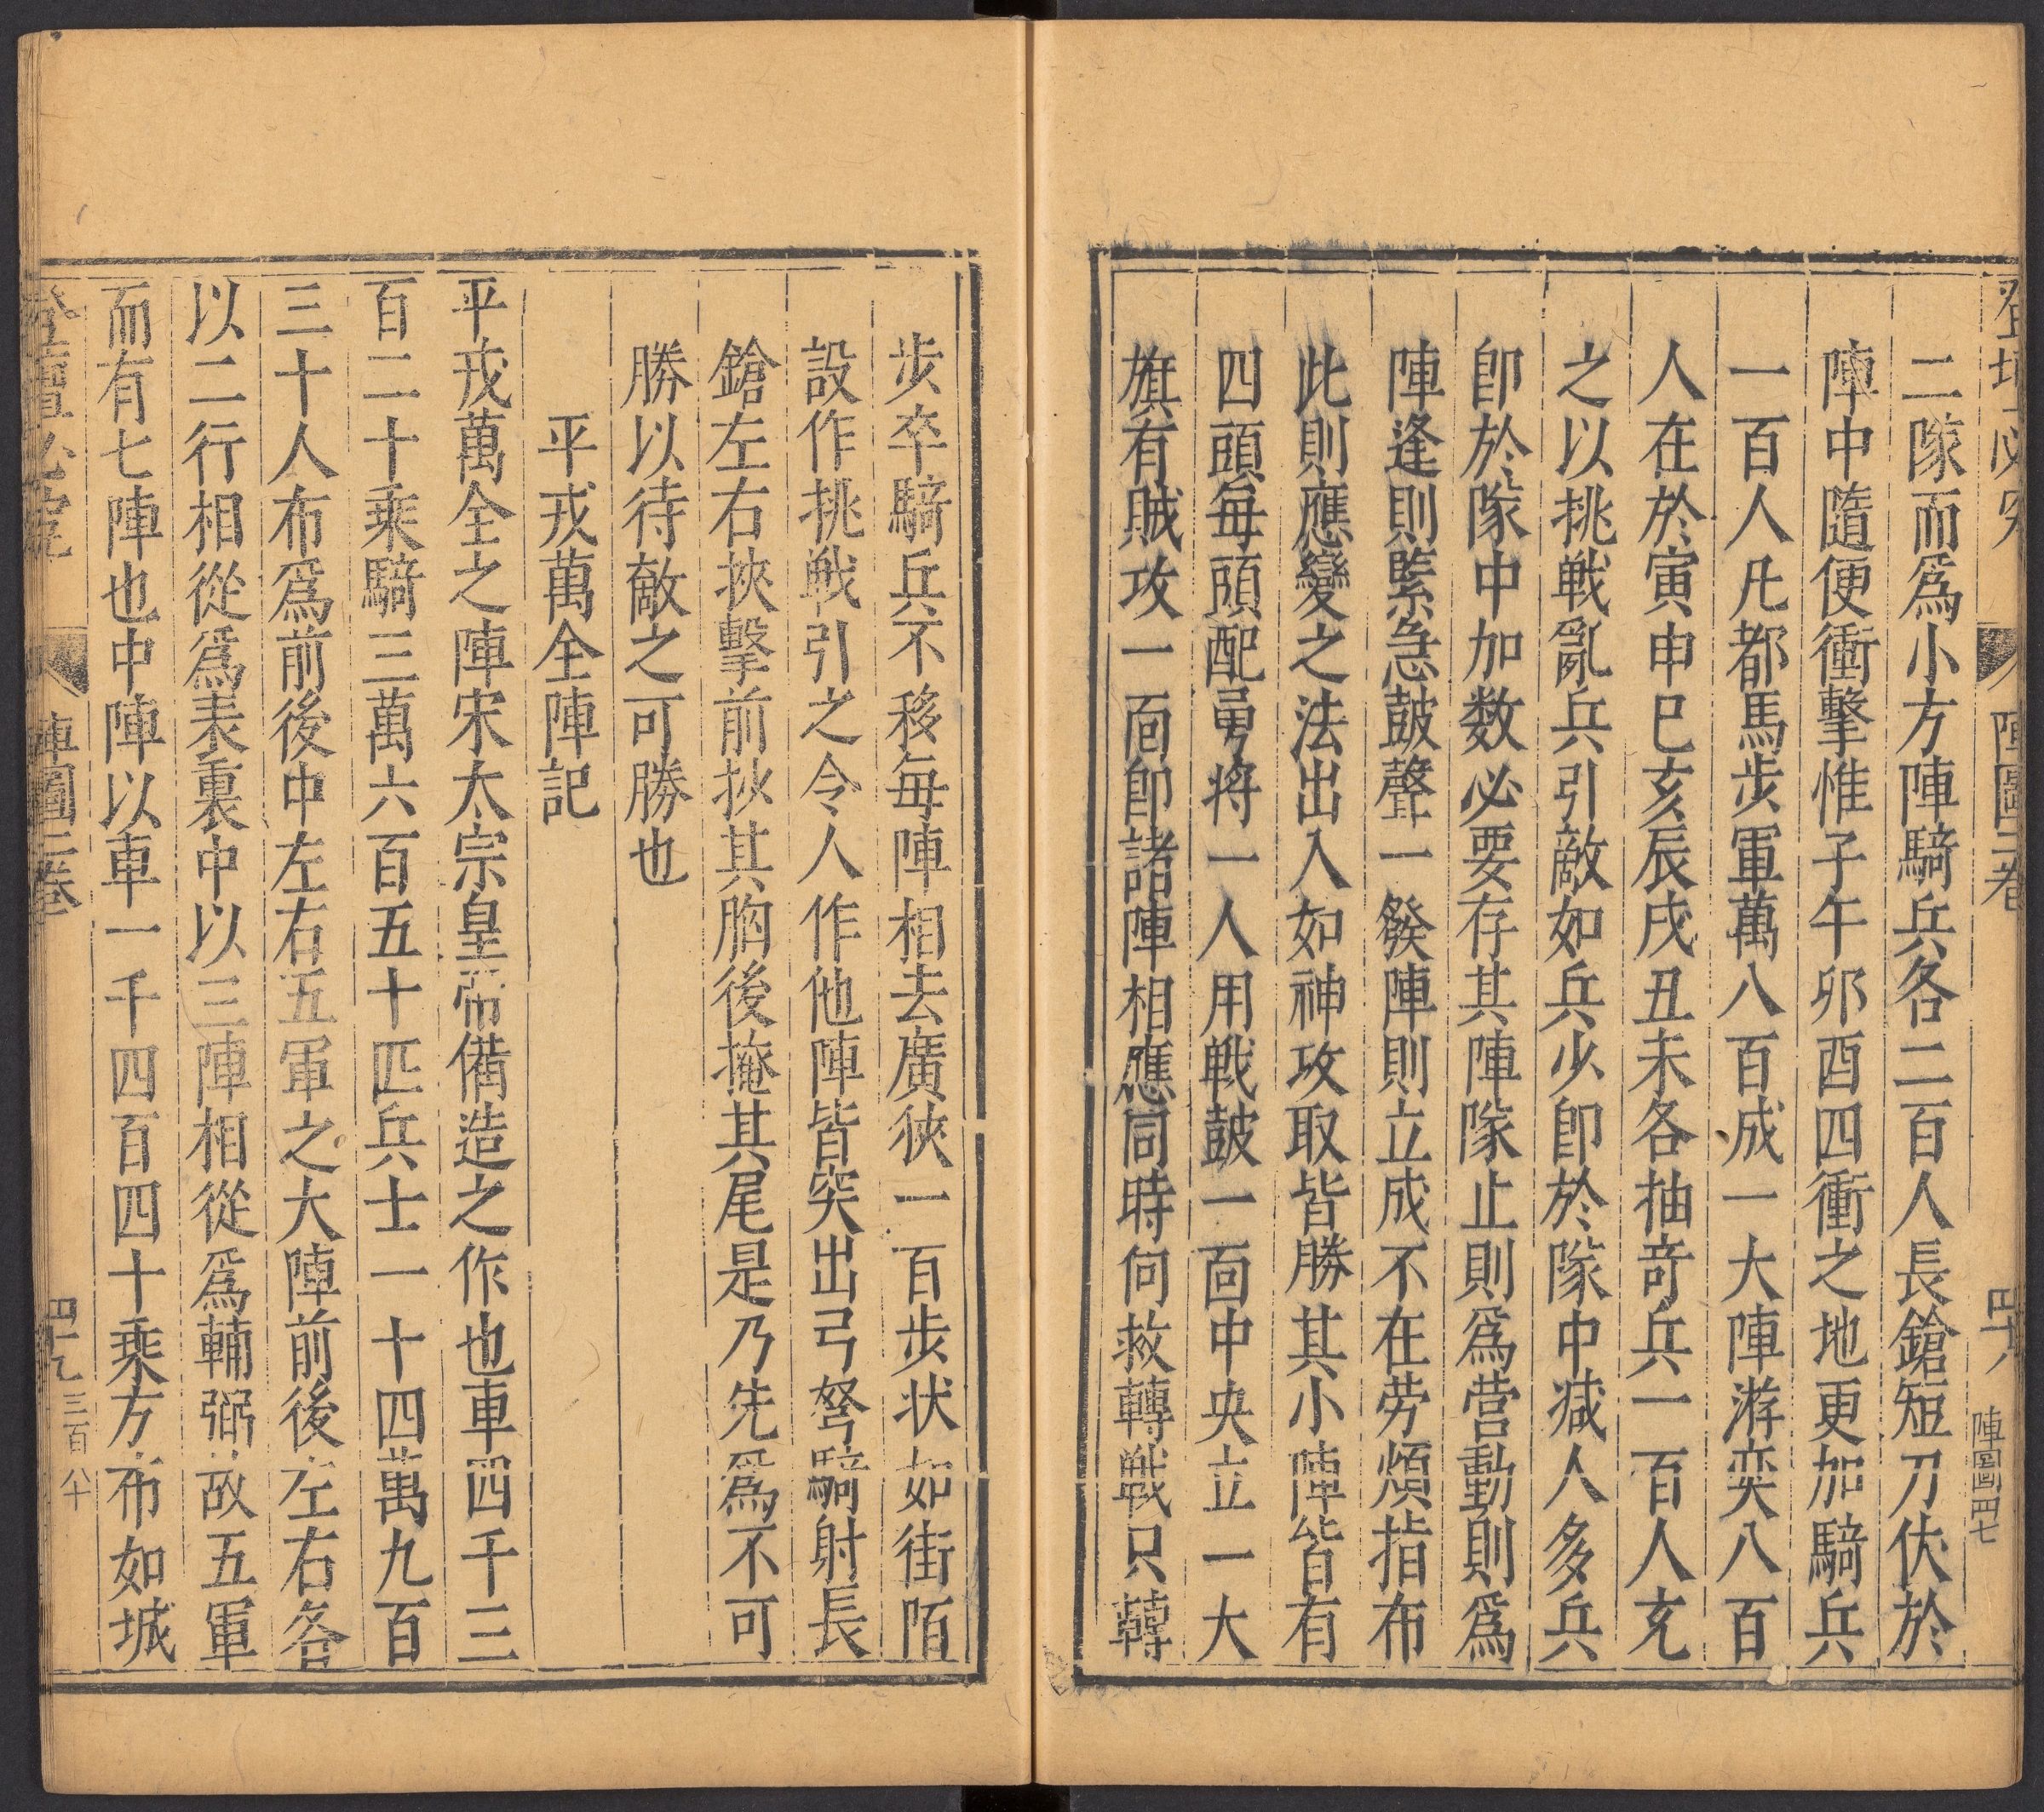 登壇必究 陣圖二卷 四十八 陣圖四七
二隊而爲小方陣騎兵各二百人長鎗短刀伏於
陣中隨便衝擊惟子午卯酉四衝之地更加騎兵
一百人凡都馬步軍萬八百成一大陣游奕八百
人在於寅申巳亥辰戌丑未各抽竒兵一百人充
之以挑戦亂兵引敵如兵少卽於隊中减人多兵
卽於隊中加数必要存其陣隊止則爲營動則爲
陣逢則緊急皷聲一發陣則立成不在劳煩指布
此則應變之法出入如神攻取皆勝其小陣皆有
四頭每頭配勇将一人用戦皷一面中央立一大
旗有賊攻一面卽諸陣相應同時何救轉戰只轉
步卒騎兵不移每陣相去廣狹一百步状如街陌
設作挑戦引之令人作他陣皆突出弓弩騎射長
鎗左右挾擊前抄其胸後掩其尾是乃先爲不可
勝以待敵之可勝也
平戎萬全陣記
平戎萬全之陣宋太宗皇帝備造之作也車四千三
百二十乘騎三萬六百五十匹兵士一十四萬九百
三十人布爲前後中左右五軍之大陣前後左右各
以二行相從爲表裏中以三陣相從爲輔弼故五軍
而有七陣也中陣以車一千四百四十乘方布如城
登壇必究 陣圖二卷 三百八十